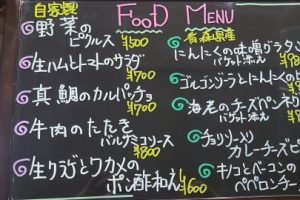 FOOD MENU
自家製
野菜の
ピクルス
¥500
生ハムとトマトのサラダ
¥700
真鯛のカルパッチョ
¥700
牛肉のたたき
バルサミコソース
¥800
生うにとワカメの
ポン酢和え
¥600
青森県産
にんにくの味噌グラタン
バケット添え
ゴルゴンゾーラとにんにくの
バケット添え
海老のチーズペンネ
チョリソー入り
カレーチーズピ
キノコとベーコンの
ペペロンチー